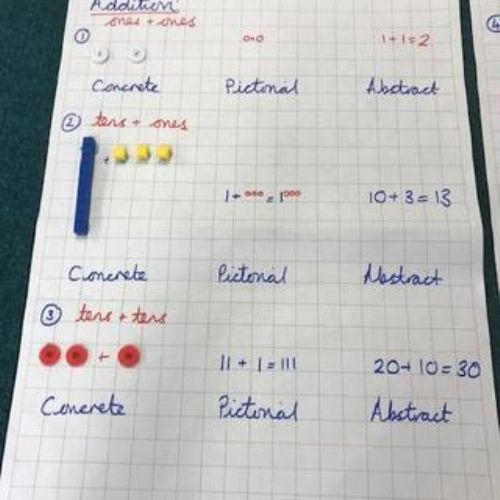 Addition
ones + ones
① o+o 1+1=2
Concrete Pictorial Abstract
② tens + ones
+
1+ooo=1ooo 10+3=13
Concrete Pictorial Abstract
③ tens + tens
+ 11 + 1 = 111 20+10=30
Concrete Pictorial Abstract
④